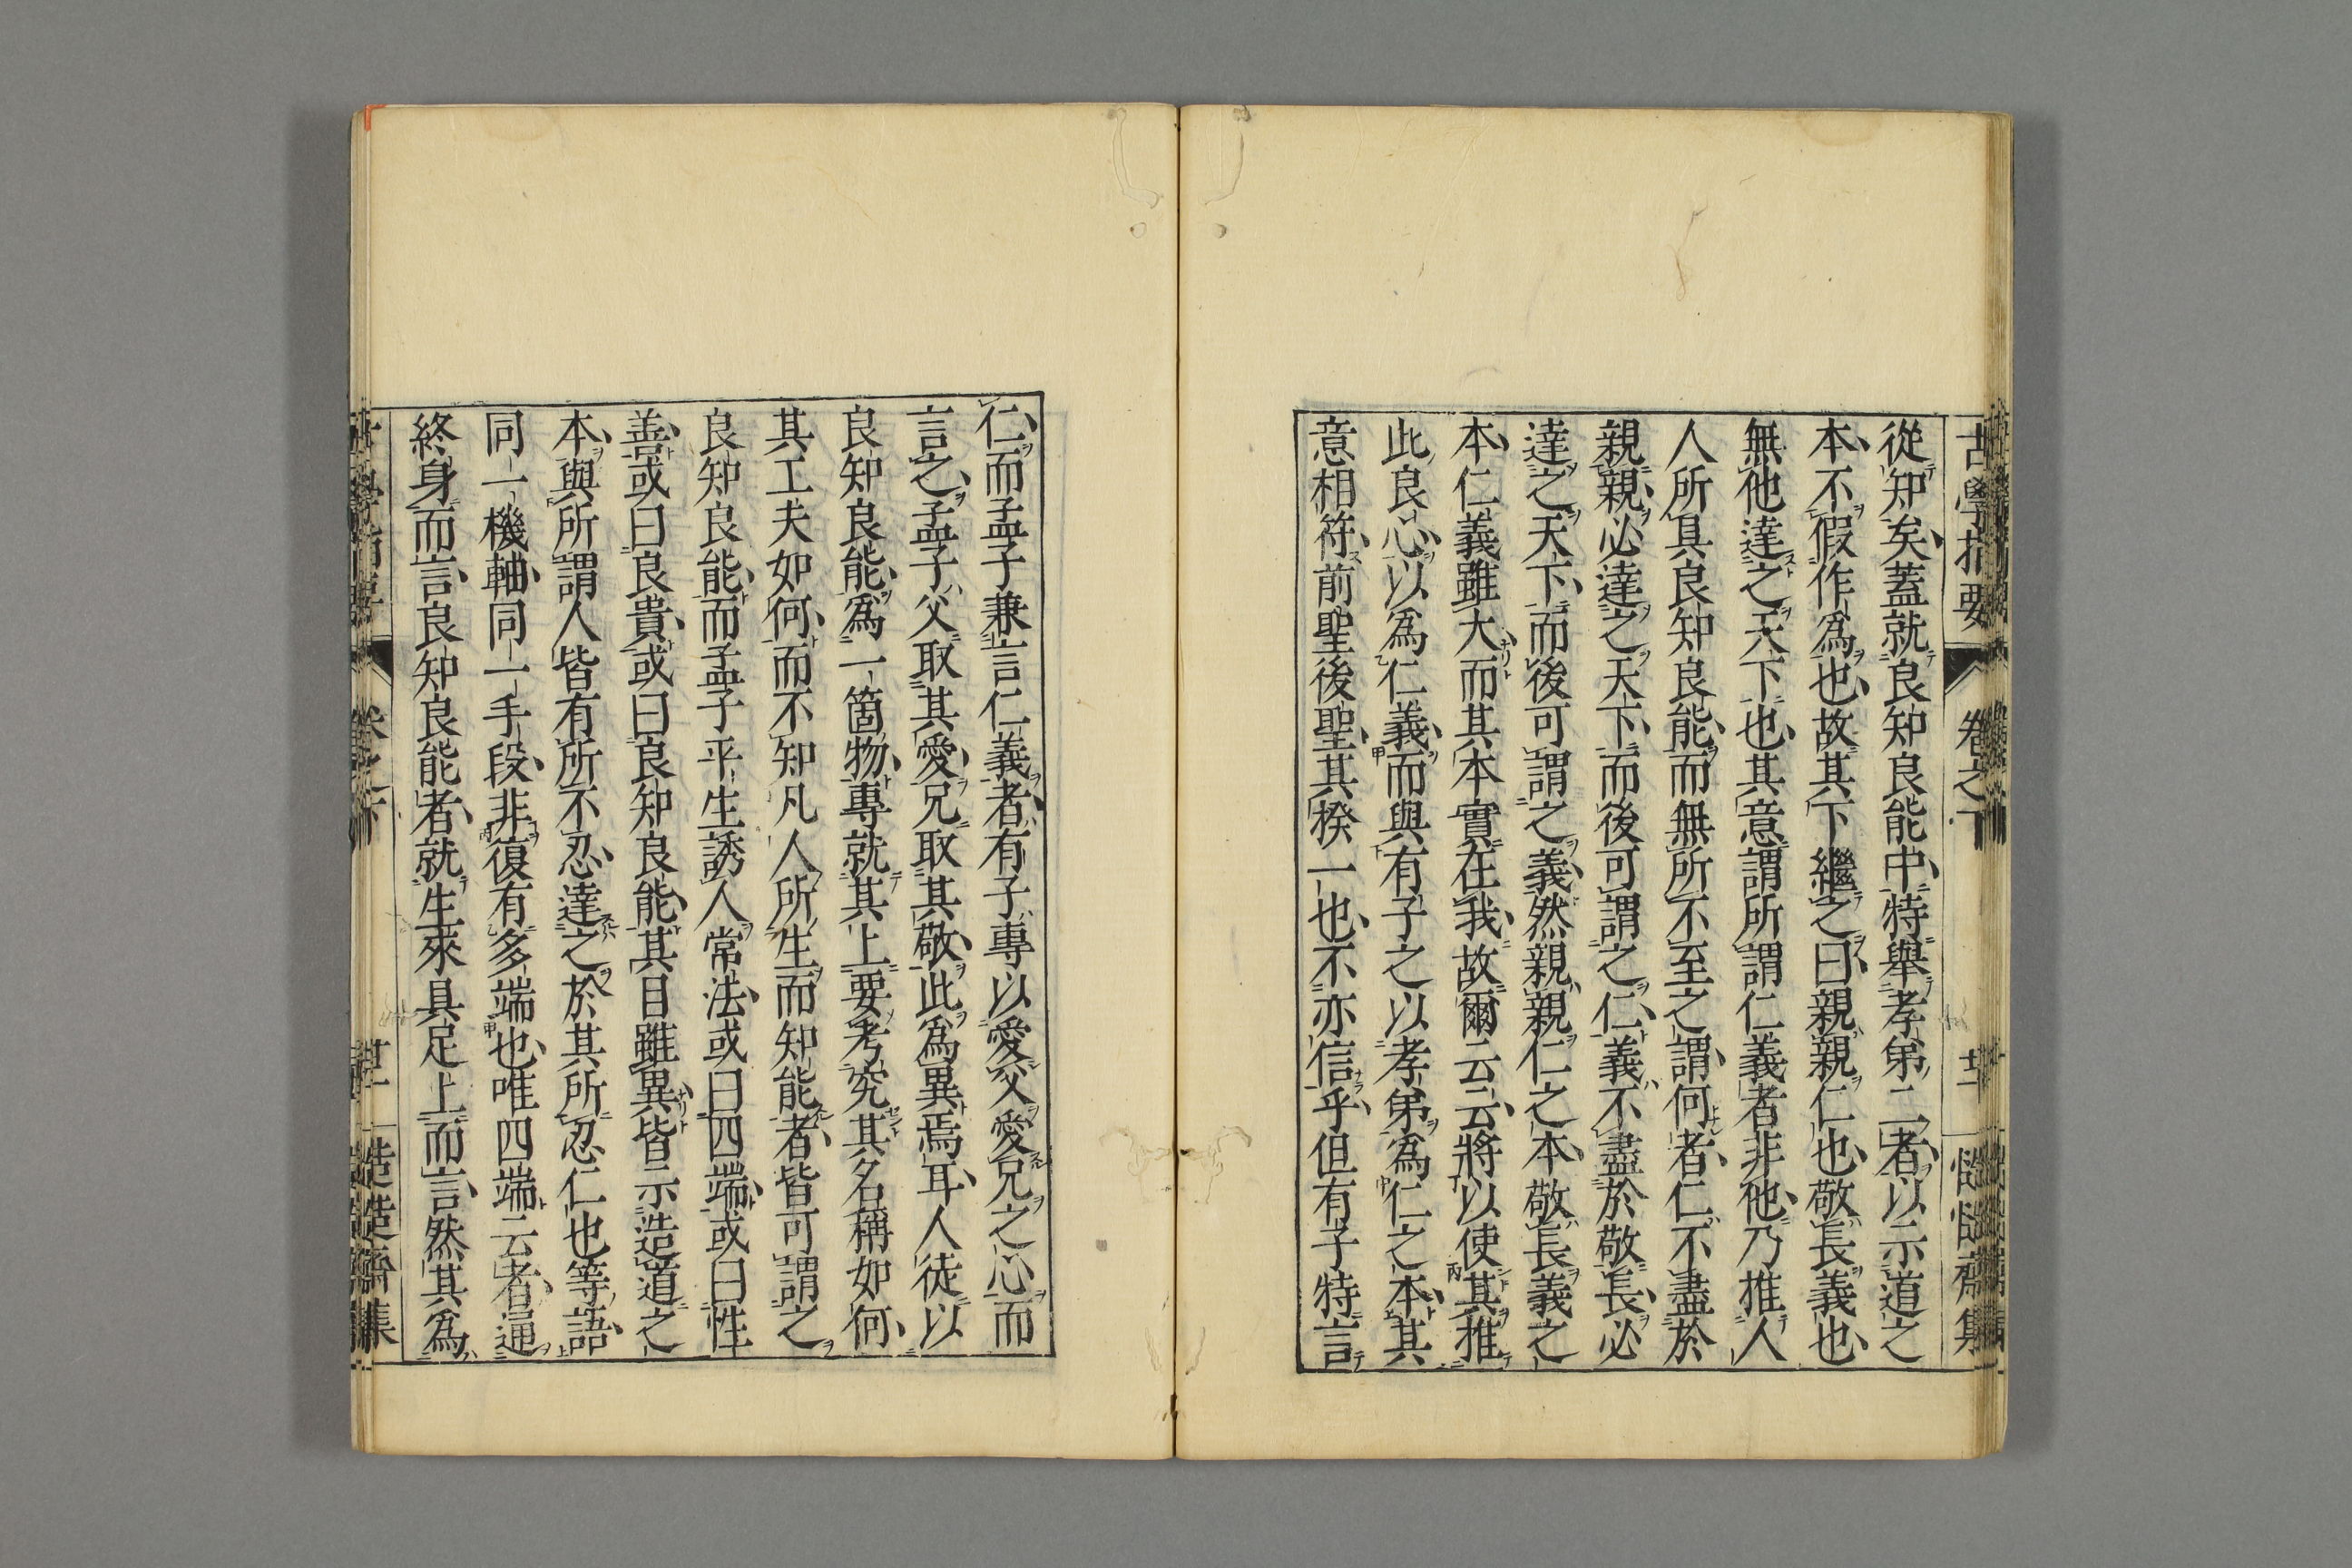 從知矣蓋就良知良能中特舉孝弟二者以示道之
本不假作為也故其下繼之曰親親仁也敬長義也
無他達之天下也其意謂所謂仁義者非他乃推人
人所具良知良能而無所不至之謂何者仁不盡於
親親必達之天下而後可謂之仁義不盡於敬長必
達之天下而後可謂之義然親親仁之本敬長義之
本仁義雖大而其本實在我故爾云云將以使其推
此良心以為仁義而與有子之以孝弟為仁之本其
意相符前聖後聖其揆一也不亦信乎但有子特言
古學指要 卷之下
仁而孟子兼言仁義者有子專以愛父愛兄之心而
言之孟子父取其愛兄取其敬此為異焉耳人徒以
良知良能為一箇物專就其上要考究其名稱如何
其工夫如何而不知凡人所生而知能者皆可謂之
良知良能而孟子平生誘人常法或曰四端或曰性
善或曰良貴或曰良知良能其目雖異皆示造道之
本與所謂人皆有所不忍達之於其所忍仁也等語
同一機軸同一手段非復有多端也唯四端云者通
終身而言良知良能者就生來具足上而言然其為